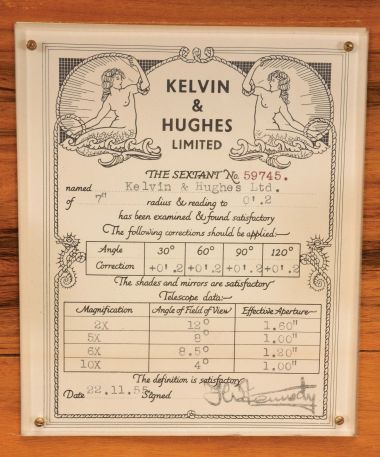 KELVIN
&
HUGHES
LIMITED
THE SEXTANT No. 59745.
named Kelvin & Hughes Ltd.
of 7" radius & reading to 0'.2
has been examined & found satisfactory
The following corrections should be applied:
Angle 30° 60° 90° 120°
Correction +0'.2 +0'.2 +0'.2 +0'.2
The shades and mirrors are satisfactory
Telescope data:
Magnification Angle of Field of View Effective Aperture
2X 12° 1.60"
5X 8° 1.00"
6X 8.5° 1.20"
10X 4° 1.00"
The definition is satisfactory
Date 22.11.55 Signed